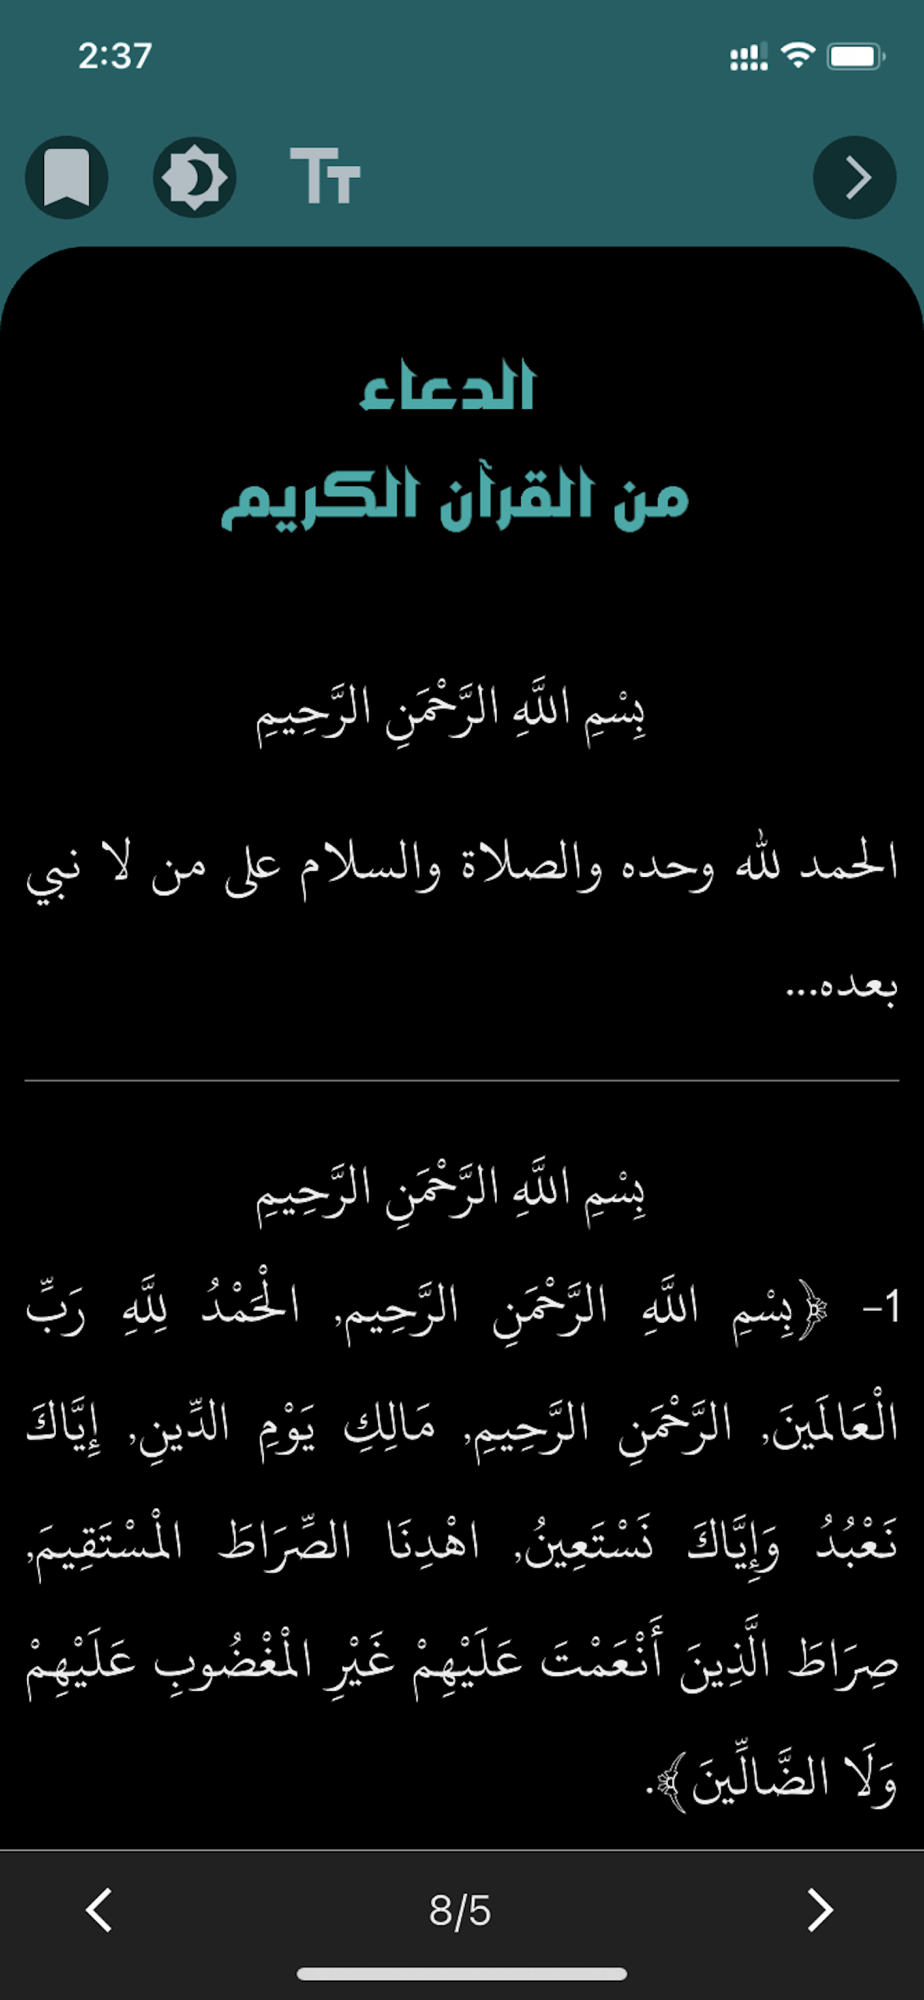 2:37
الدعاء
من القرآن الكريم
بِسْمِ اللَّهِ الرَّحْمَنِ الرَّحِيمِ
الحمد لله وحده والصلاة والسلام على من لا نبي
بعده...
بِسْمِ اللَّهِ الرَّحْمَنِ الرَّحِيمِ
1- ﴿بِسْمِ اللَّهِ الرَّحْمَنِ الرَّحِيمِ, الْحَمْدُ لِلَّهِ رَبِّ
الْعَالَمَينَ, الرَّحْمَنِ الرَّحِيمِ, مَالِكِ يَوْمِ الدِّينِ, إِيَّاكَ
نَعْبُدُ وَإِيَّاكَ نَسْتَعِينُ, اهْدِنَا الصِّرَاطَ الْمْسْتَقِيمَ,
صِرَاطَ الَّذِينَ أَنْعَمْتَ عَلَيْهِمْ غَيْرِ الْمْغْضُوبِ عَلَيْهِمْ
وَلَا الضَّالِّينَ﴾.
8/5